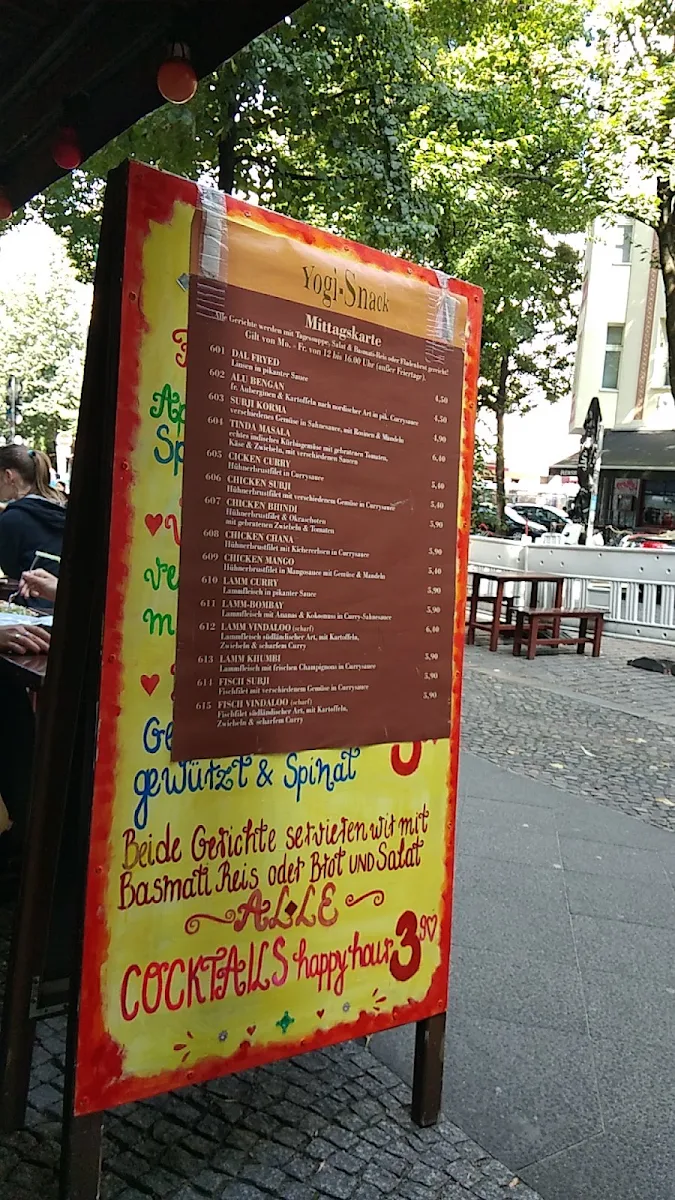 Yogi-Snack
Mittagskarte
Alle Gerichte werden mit Tagessuppe, Salat & Basmati-Reis oder Fladenbrot gereicht!
Gilt von Mo. - Fr. von 12 bis 16.00 Uhr (außer Feiertage).
601 DAL FRYED
Linsen in pikanter Sauce 4,50
602 ALU BENGAN
fr. Auberginen & Kartoffeln nach nordischer Art in pik. Currysauce 4,50
603 SUBJI KORMA
verschiedenes Gemüse in Sahnesauce, mit Rosinen & Mandeln 4,90
604 TINDA MASALA
echtes indisches Kürbisgemüse mit gebratenen Tomaten, 6,40
Käse & Zwiebeln, mit verschiedenen Saucen
605 CICKEN CURRY
Hühnerbrustfilet in Currysauce 5,40
606 CHICKEN SUBJI
Hühnerbrustfilet mit verschiedenem Gemüse in Currysauce 5,40
607 CHICKEN BHINDI
Hühnerbrustfilet & Okraschoten 5,90
mit gebratenen Zwiebeln & Tomaten
608 CHICKEN CHANA
Hühnerbrustfilet mit Kichererbsen in Currysauce 5,90
609 CHICKEN MANGO
Hühnerbrustfilet in Mangosauce mit Gemüse & Mandeln 5,40
610 LAMM CURRY
Lammfleisch in pikanter Sauce 5,90
611 LAMM-BOMBAY
Lammfleisch mit Ananas & Kokosnuss in Curry-Sahnesauce 5,90
612 LAMM VINDALOO (scharf) 6,40
Lammfleisch südländischer Art, mit Kartoffeln,
Zwiebeln & scharfem Curry
613 LAMM KHUMBI 5,90
Lammfleisch mit frischen Champignons in Currysauce
614 FISCH SUBJI 5,90
Fischfilet mit verschiedenem Gemüse in Currysauce
615 FISCH VINDALOO (scharf) 5,90
Fischfilet südländischer Art, mit Kartoffeln,
Zwiebeln & scharfem Curry
Ge
gewürzt & Spinat
Beide Gerichte servieren wir mit
Basmati Reis oder Brot UND Salat
ALLE
COCKTAILS happy hour 3 90